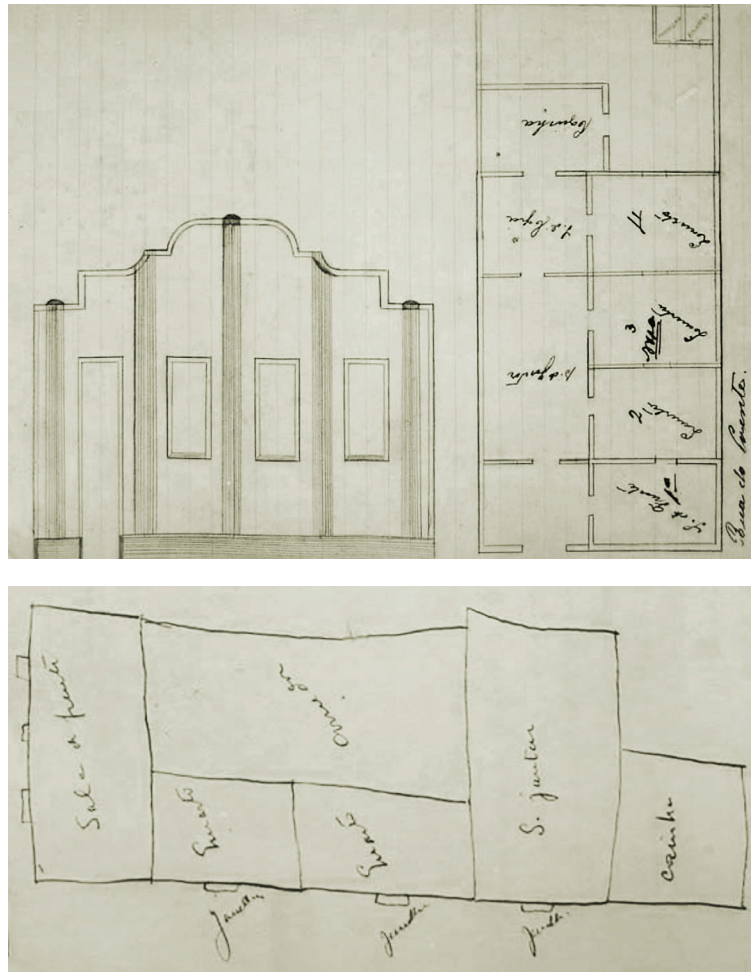 Cosinha
S. de Copia
Quarto
4
Quarto
3
S. de Jantar
Quarto
2
S. de
Frente
1º
Rua do Poente.
Sala de frente
Corredor
Quarto
Quarto
S. jantar
Cosinha
Janella
Janella
Janella